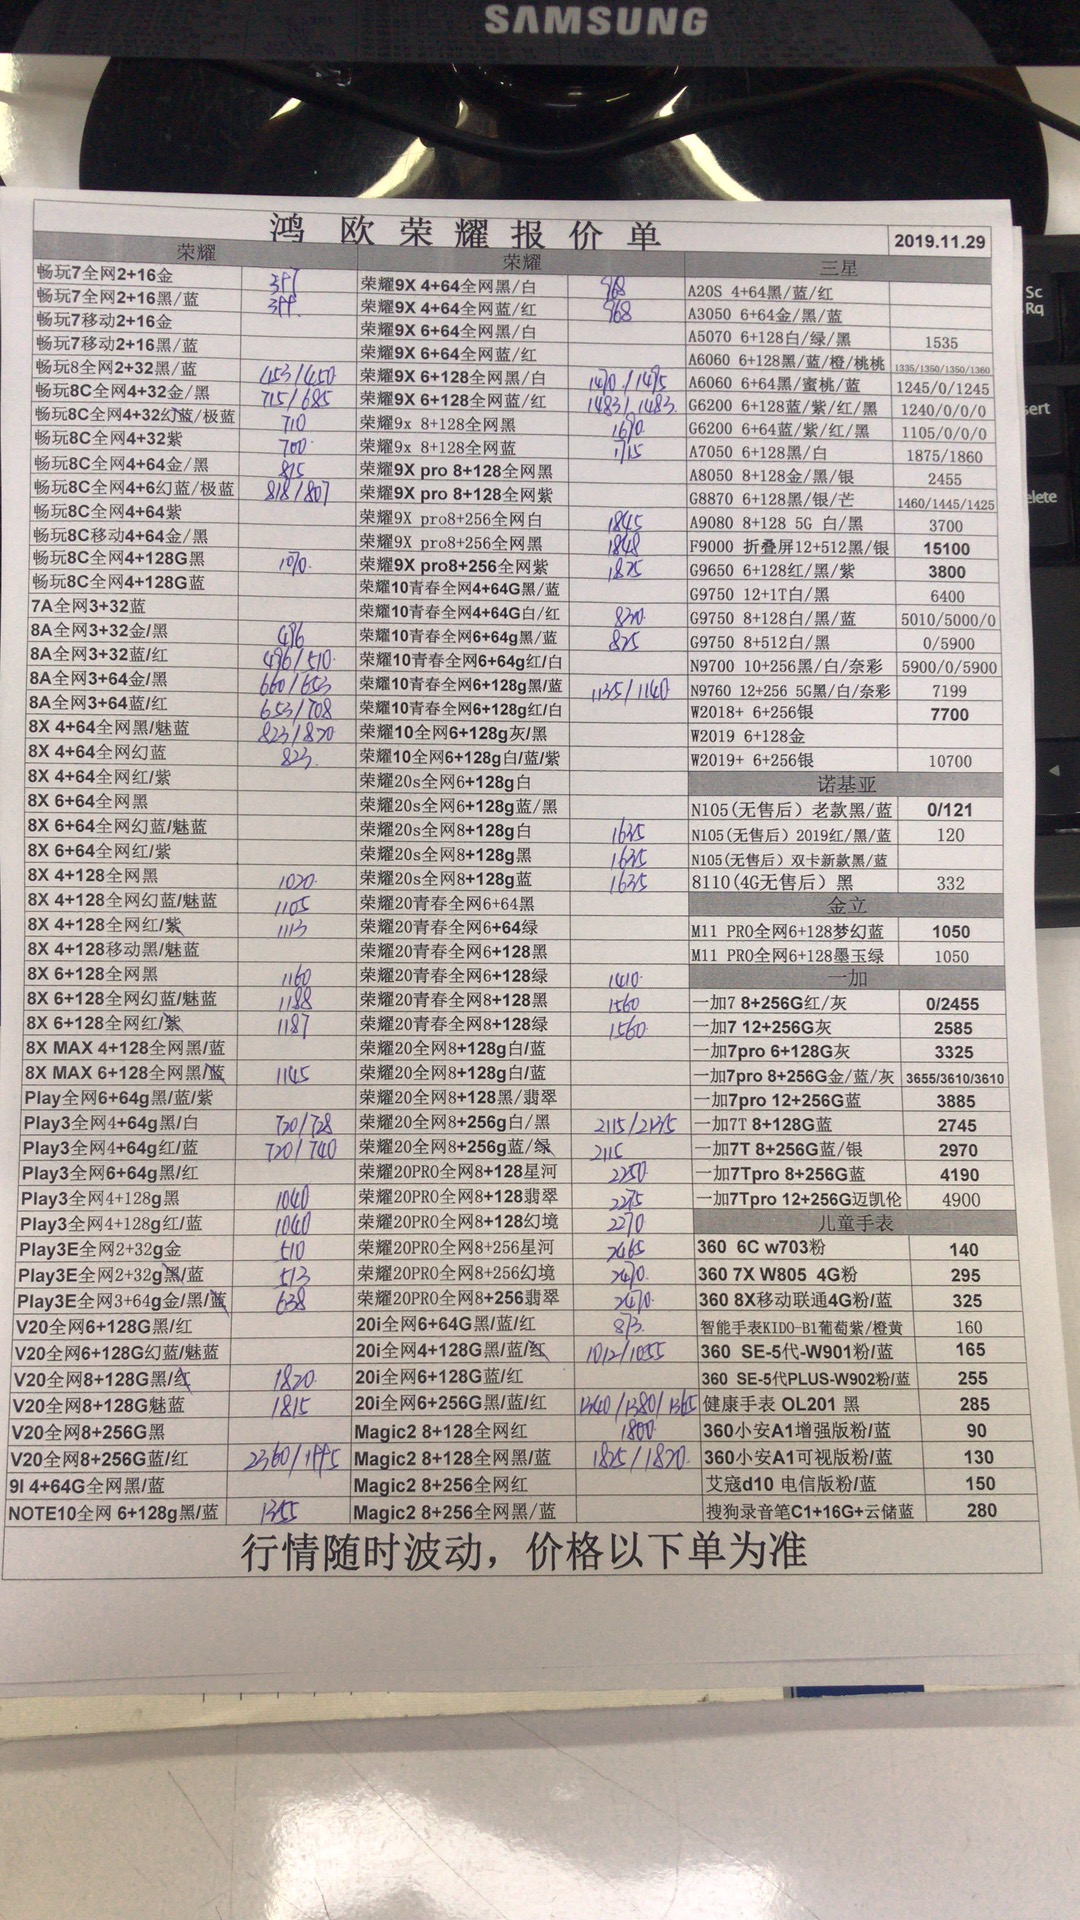 SAMSUNG
鸿欧荣耀报价单
2019.11.29
荣耀
畅玩7全网2+16金
畅玩7全网2+16黑/蓝
畅玩7移动2+16金
畅玩7移动2+16黑/蓝
畅玩8全网2+32黑/蓝 453/450
畅玩8C全网4+32金/黑 715/685
畅玩8C全网4+32幻蓝/极蓝 710
畅玩8C全网4+32紫 700
畅玩8C全网4+64金/黑 815
畅玩8C全网4+6幻蓝/极蓝 818/807
畅玩8C全网4+64紫
畅玩8C移动4+64金/黑
畅玩8C全网4+128G黑 1070
畅玩8C全网4+128G蓝
7A全网3+32蓝
8A全网3+32金/黑 496
8A全网3+32蓝/红 496/510
8A全网3+64金/黑 660/653
8A全网3+64蓝/红 653/708
8X 4+64全网黑/魅蓝 823/820
8X 4+64全网幻蓝 823
8X 4+64全网红/紫
8X 6+64全网黑
8X 6+64全网幻蓝/魅蓝
8X 6+64全网红/紫
8X 4+128全网黑 1020
8X 4+128全网幻蓝/魅蓝 1105
8X 4+128全网红/紫 1113
8X 4+128移动黑/魅蓝
8X 6+128全网黑 1160
8X 6+128全网幻蓝/魅蓝 1188
8X 6+128全网红/紫 1187
8X MAX 4+128全网黑/蓝
8X MAX 6+128全网黑/蓝 1145
Play全网6+64g黑/蓝/紫
Play3全网4+64g黑/白 720/728
Play3全网4+64g红/蓝 720/740
Play3全网6+64g黑/红
Play3全网4+128g黑 1040
Play3全网4+128g红/蓝 1040
Play3E全网2+32g金 510
Play3E全网2+32g黑/蓝 513
Play3E全网3+64g金/黑/蓝 638
V20全网6+128G黑/红
V20全网6+128G幻蓝/魅蓝
V20全网8+128G黑/红 1820
V20全网8+128G魅蓝 1815
V20全网8+256G黑
V20全网8+256G蓝/红 2360/1995
9I 4+64G全网黑/蓝
NOTE10全网 6+128g黑/蓝 1355
荣耀
荣耀9X 4+64全网黑/白 968
荣耀9X 4+64全网蓝/红 968
荣耀9X 6+64全网黑/白
荣耀9X 6+64全网蓝/红
荣耀9X 6+128全网黑/白 1470/1475
荣耀9X 6+128全网蓝/红 1483/1483
荣耀9x 8+128全网黑 1690
荣耀9x 8+128全网蓝 1715
荣耀9X pro 8+128全网黑
荣耀9X pro 8+128全网紫
荣耀9X pro8+256全网白 1845
荣耀9X pro8+256全网黑 1848
荣耀9X pro8+256全网紫 1825
荣耀10青春全网4+64G黑/蓝
荣耀10青春全网4+64G白/红 820
荣耀10青春全网6+64g黑/蓝 825
荣耀10青春全网6+64g红/白
荣耀10青春全网6+128g黑/蓝 1135/1140
荣耀10青春全网6+128g红/白
荣耀10全网6+128g灰/黑
荣耀10全网6+128g白/蓝/紫
荣耀20s全网6+128g白
荣耀20s全网6+128g蓝/黑
荣耀20s全网8+128g白 1635
荣耀20s全网8+128g黑 1635
荣耀20s全网8+128g蓝 1635
荣耀20青春全网6+64黑
荣耀20青春全网6+64绿
荣耀20青春全网6+128黑
荣耀20青春全网6+128绿 1410
荣耀20青春全网8+128黑 1560
荣耀20青春全网8+128绿 1560
荣耀20全网8+128g白/蓝
荣耀20全网8+128g白/蓝
荣耀20全网8+128黑/翡翠
荣耀20全网8+256g白/黑 2115/2135
荣耀20全网8+256g蓝/绿 2115
荣耀20PRO全网8+128星河 2250
荣耀20PRO全网8+128翡翠 2275
荣耀20PRO全网8+128幻境 2270
荣耀20PRO全网8+256星河 2465
荣耀20PRO全网8+256幻境 2470
荣耀20PRO全网8+256翡翠 2470
20i全网6+64G黑/蓝/红 873
20i全网4+128G黑/蓝/红 1012/1055
20i全网6+128G蓝/红
20i全网6+256G黑/蓝/红 1340/1380/1365
Magic2 8+128全网红 1800
Magic2 8+128全网黑/蓝 1825/1820
Magic2 8+256全网红
Magic2 8+256全网黑/蓝
三星
A20S 4+64黑/蓝/红
A3050 6+64金/黑/蓝
A5070 6+128白/绿/黑 1535
A6060 6+128黑/蓝/橙/桃桃 1335/1350/1350/1360
A6060 6+64黑/蜜桃/蓝 1245/0/1245
G6200 6+128蓝/紫/红/黑 1240/0/0/0
G6200 6+64蓝/紫/红/黑 1105/0/0/0
A7050 6+128黑/白 1875/1860
A8050 8+128金/黑/银 2455
G8870 6+128黑/银/芒 1460/1445/1425
A9080 8+128 5G 白/黑 3700
F9000 折叠屏12+512黑/银 15100
G9650 6+128红/黑/紫 3800
G9750 12+1T白/黑 6400
G9750 8+128白/黑/蓝 5010/5000/0
G9750 8+512白/黑 0/5900
N9700 10+256黑/白/奈彩 5900/0/5900
N9760 12+256 5G黑/白/奈彩 7199
W2018+ 6+256银 7700
W2019 6+128金
W2019+ 6+256银 10700
诺基亚
N105(无售后）老款黑/蓝 0/121
N105(无售后）2019红/黑/蓝 120
N105(无售后）双卡新款黑/蓝
8110(4G无售后）黑 332
金立
M11 PRO全网6+128梦幻蓝 1050
M11 PRO全网6+128墨玉绿 1050
一加
一加7 8+256G红/灰 0/2455
一加7 12+256G灰 2585
一加7pro 6+128G灰 3325
一加7pro 8+256G金/蓝/灰 3655/3610/3610
一加7pro 12+256G蓝 3885
一加7T 8+128G蓝 2745
一加7T 8+256G蓝/银 2970
一加7Tpro 8+256G蓝 4190
一加7Tpro 12+256G迈凯伦 4900
儿童手表
360 6C w703粉 140
360 7X W805 4G粉 295
360 8X移动联通4G粉/蓝 325
智能手表KIDO-B1葡萄紫/橙黄 160
360 SE-5代-W901粉/蓝 165
360 SE-5代PLUS-W902粉/蓝 255
健康手表 OL201 黑 285
360小安A1增强版粉/蓝 90
360小安A1可视版粉/蓝 130
艾寇d10 电信版粉/蓝 150
搜狗录音笔C1+16G+云储蓝 280
行情随时波动，价格以下单为准
Sc
Rq
sert
elete